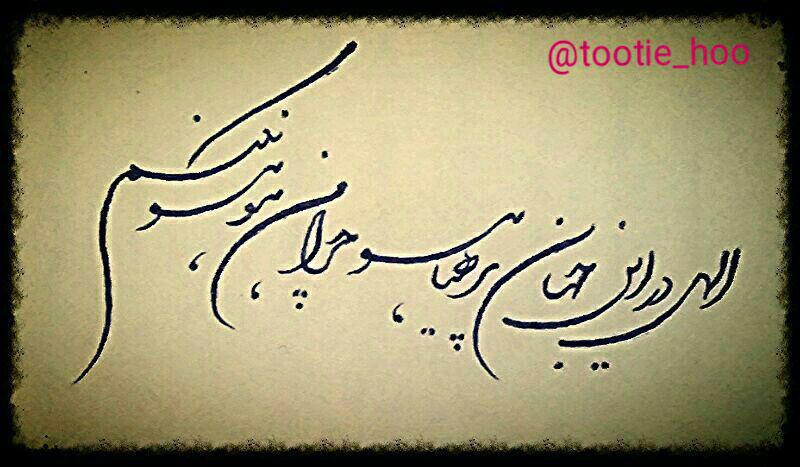 @tootie_hoo
الهی در این جهان پرهیاهو چرا من هو هو نکنم